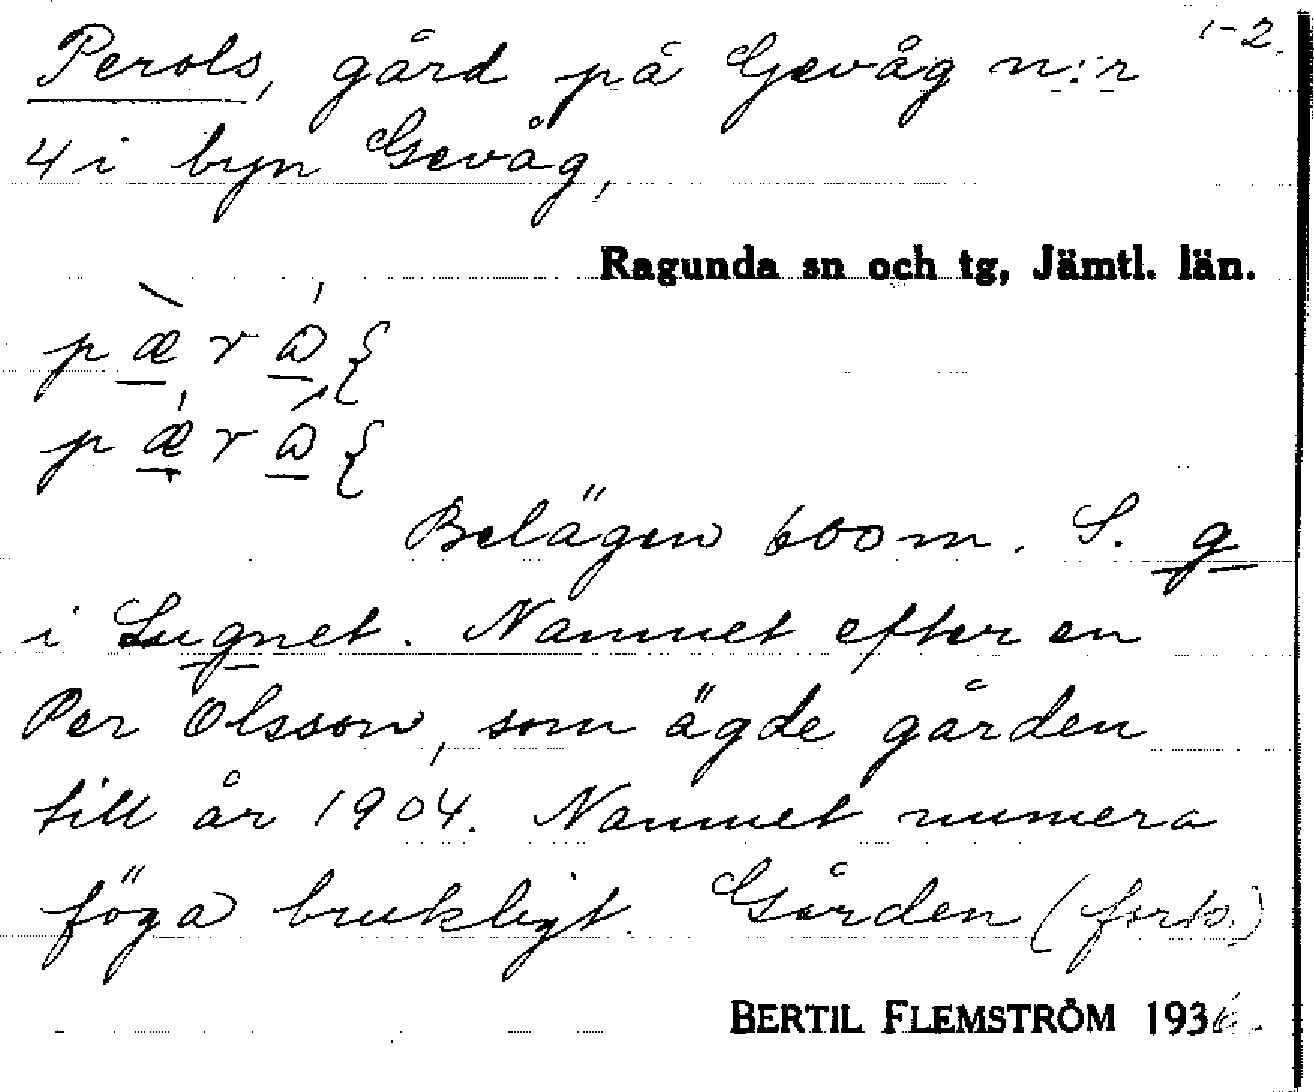 1-2.
Perols, gård på Gevåg n:r
4 i byn Gevåg,
Ragunda sn och tg, Jämtl. län.
p æ r
p æ r
Belägen 600 m. S. g
i Lugnet. Namnet efter en
Per Olsson, som ägde gården
till år 1904. Namnet numera
föga brukligt. Gården (forts.)
BERTIL FLEMSTRÖM 1936.